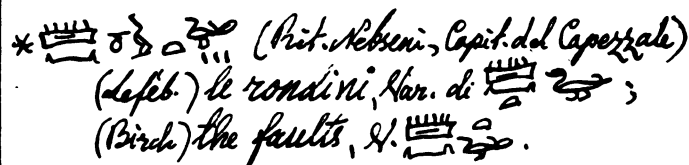 * (Rit. Nebseni, Capit. del Capezzale)
(Lefèb.) le rondini, Var. di ;
(Birch) the faults, V. .